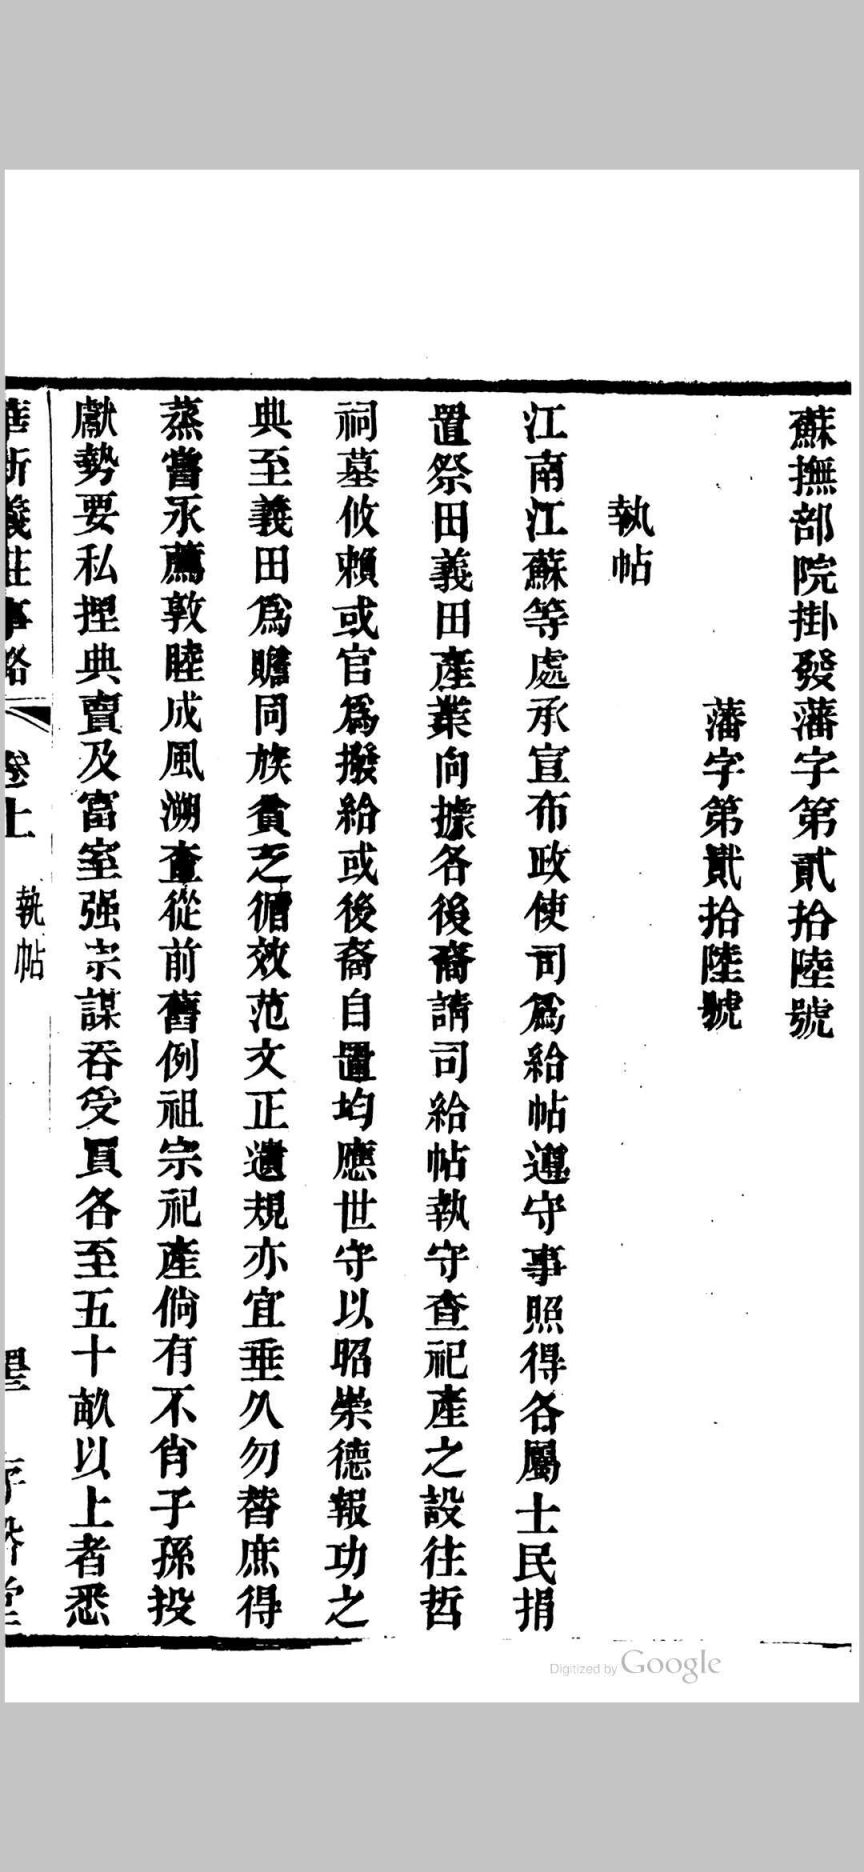 蘇撫部院掛發藩字第貳拾陸號
藩字第貳拾陸號
執帖
江南江蘇等處承宣布政使司爲給帖遵守事照得各屬士民捐
置祭田義田產業向據各後裔請司給帖執守查祀產之設往哲
祠墓攸賴或官爲撥給或後裔自置均應世守以昭崇德報功之
典至義田爲贍同族貧乏循效范文正遺規亦宜垂久勿替庶得
蒸嘗永薦敦睦成風溯查從前舊例祖宗祀產倘有不肖子孫投
獻勢要私捏典賣及富室强宗謀吞受買各至五十畝以上者悉
義莊事略 卷上 執帖
Digitized by Google